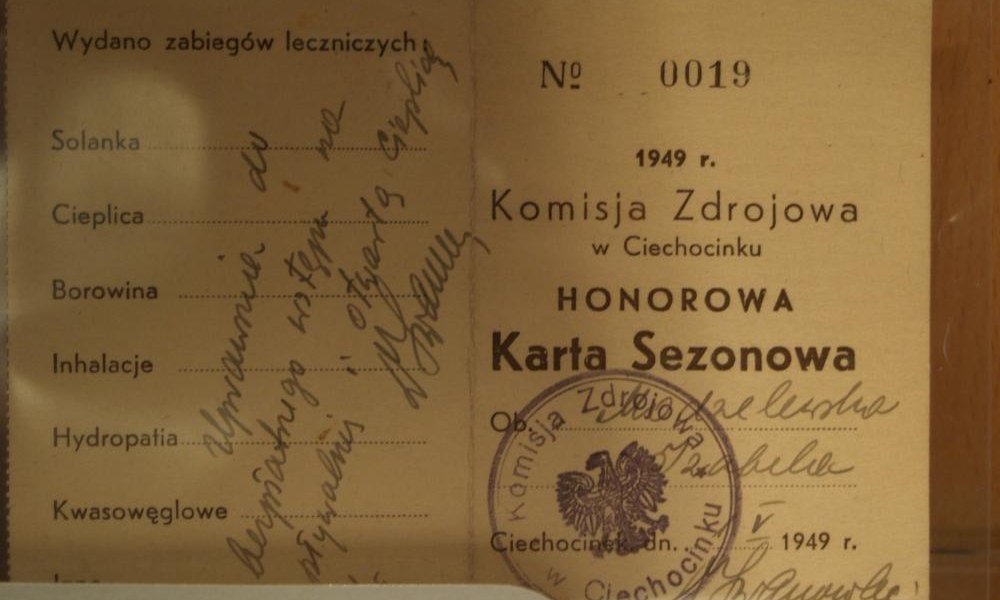 Wydano zabiegów leczniczych:
Solanka
Cieplica
Borowina
Inhalacje
Hydropatia
Kwasowęglowe
Inne
Uprawnia do
bezpłatnego wstępu na
pływalnię i otwartą cieplicę
№ 0019
1949 r.
Komisja Zdrojowa
w Ciechocinku
HONOROWA
Karta Sezonowa
Ob. Modzelewska
Izabela
Ciechocinek dn. V 1949 r.
Komisja Zdrojowa
w Ciechocinku